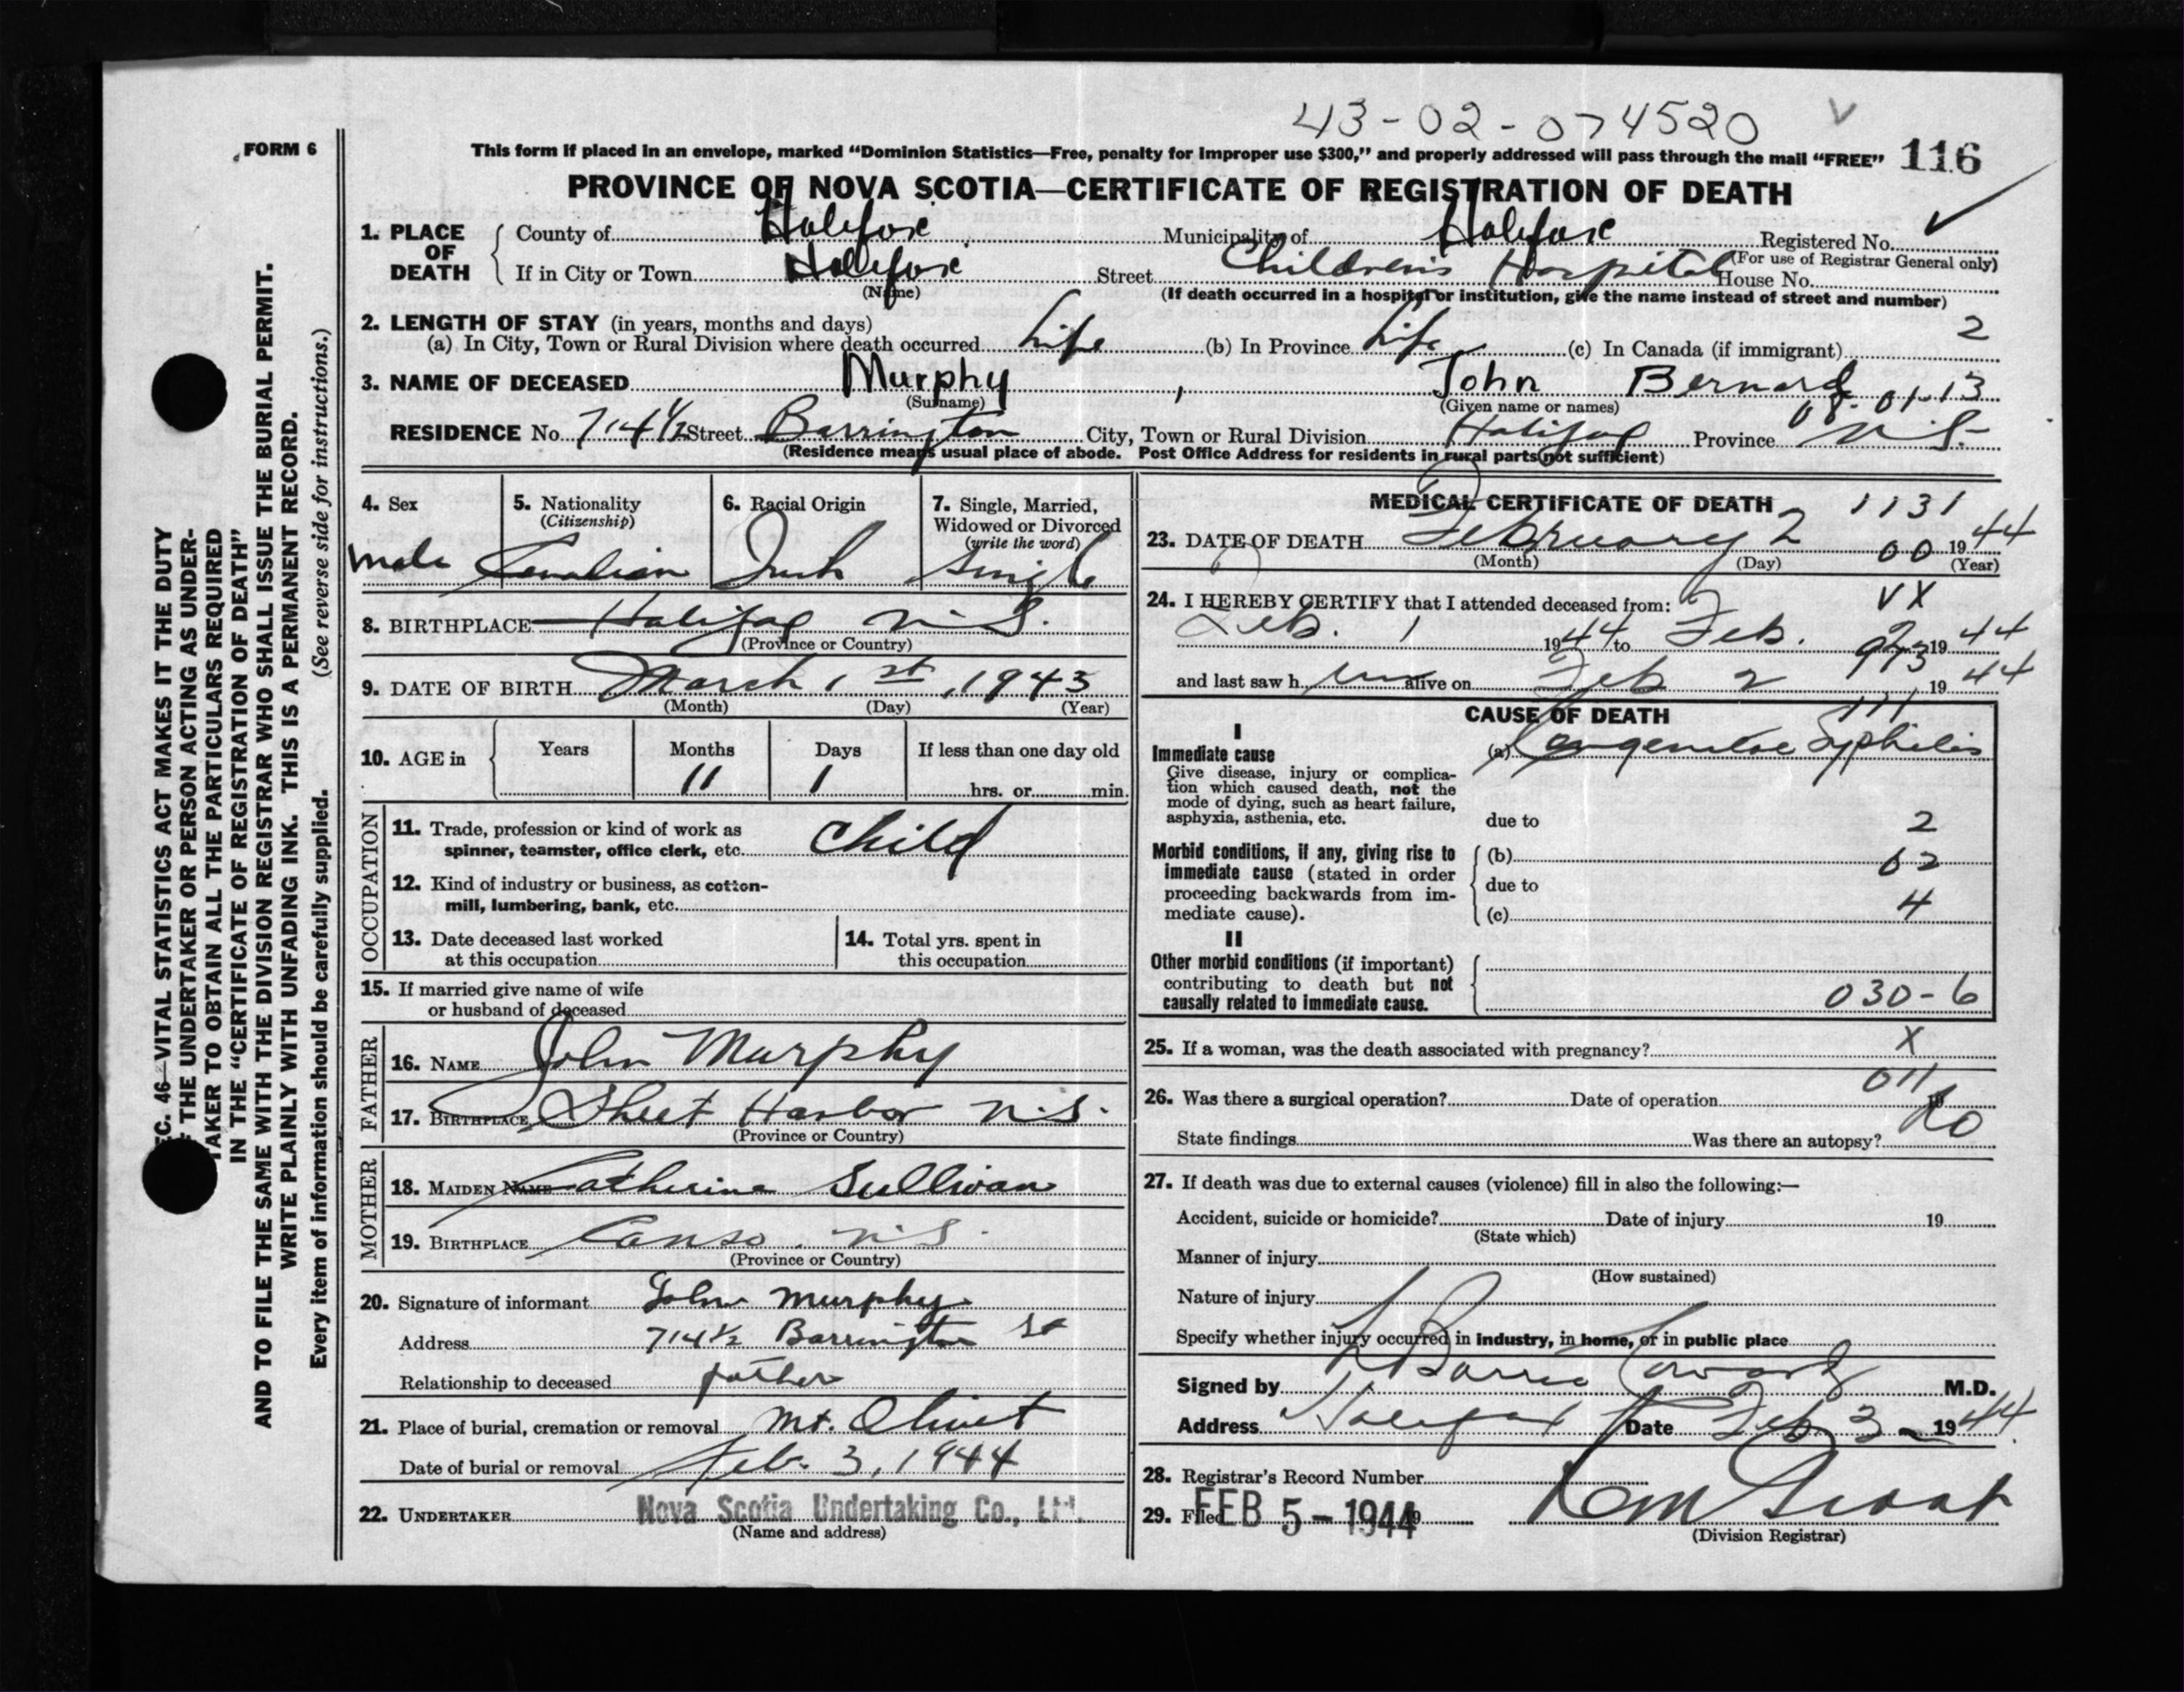 43-02-074520 V
FORM 6
This form if placed in an envelope, marked “Dominion Statistics—Free, penalty for improper use $300,” and properly addressed will pass through the mail “FREE” 116
PROVINCE OF NOVA SCOTIA—CERTIFICATE OF REGISTRATION OF DEATH
1. PLACE OF DEATH { County of Halifax Municipality of Halifax Registered No. ✓
(For use of Registrar General only)
If in City or Town Halifax Street Children's Hospital House No.
(Name) (If death occurred in a hospital or institution, give the name instead of street and number)
2. LENGTH OF STAY (in years, months and days) 2
(a) In City, Town or Rural Division where death occurred Life (b) In Province Life (c) In Canada (if immigrant)
3. NAME OF DECEASED Murphy , John Bernard
(Surname) (Given name or names) 08-01-13
RESIDENCE No. 714½ Street Barrington City, Town or Rural Division Halifax Province N.S.
(Residence means usual place of abode. Post Office Address for residents in rural parts not sufficient)
4. Sex 5. Nationality (Citizenship) 6. Racial Origin 7. Single, Married, Widowed or Divorced (write the word)
Male Canadian Irish Single
8. BIRTHPLACE Halifax N.S.
(Province or Country)
9. DATE OF BIRTH March 1st, 1943
(Month) (Day) (Year)
10. AGE in { Years Months Days If less than one day old
11 1 hrs. or min.
OCCUPATION
11. Trade, profession or kind of work as
spinner, teamster, office clerk, etc. Child
12. Kind of industry or business, as cotton-
mill, lumbering, bank, etc.
13. Date deceased last worked
at this occupation
14. Total yrs. spent in
this occupation
15. If married give name of wife
or husband of deceased
FATHER
16. NAME John Murphy
17. BIRTHPLACE Sheet Harbor N.S.
(Province or Country)
MOTHER
18. MAIDEN NAME Catherine Sullivan
19. BIRTHPLACE Canso. N.S.
(Province or Country)
20. Signature of informant John Murphy
Address 714½ Barrington St
Relationship to deceased father
21. Place of burial, cremation or removal Mt. Olivet
Date of burial or removal Feb. 3, 1944
22. UNDERTAKER Nova Scotia Undertaking Co., Ltd.
(Name and address)
MEDICAL CERTIFICATE OF DEATH 1131
23. DATE OF DEATH February 2 00 1944
(Month) (Day) (Year)
24. I HEREBY CERTIFY that I attended deceased from: VX
Feb. 1 1944 to Feb. 2 1944
and last saw h im alive on Feb 2 1944
CAUSE OF DEATH 111
I
Immediate cause (a) Congenital Syphilis
Give disease, injury or complica-
tion which caused death, not the
mode of dying, such as heart failure,
asphyxia, asthenia, etc.
due to 2
Morbid conditions, if any, giving rise to
immediate cause (stated in order
proceeding backwards from im-
mediate cause).
(b) 62
due to
(c) 4
II
Other morbid conditions (if important)
contributing to death but not
causally related to immediate cause. 030-6
25. If a woman, was the death associated with pregnancy? X
011
26. Was there a surgical operation? Date of operation 19
State findings Was there an autopsy? No
27. If death was due to external causes (violence) fill in also the following:—
Accident, suicide or homicide? Date of injury 19
(State which)
Manner of injury
(How sustained)
Nature of injury
Specify whether injury occurred in industry, in home, or in public place
Signed by Barrie Coward M.D.
Address Halifax Date Feb 3 1944
28. Registrar's Record Number
29. Filed FEB 5-1944 19
(Division Registrar)
EC. 46—VITAL STATISTICS ACT MAKES IT THE DUTY
THE UNDERTAKER OR PERSON ACTING AS UNDER-
TAKER TO OBTAIN ALL THE PARTICULARS REQUIRED
IN THE “CERTIFICATE OF REGISTRATION OF DEATH”
AND TO FILE THE SAME WITH THE DIVISION REGISTRAR WHO SHALL ISSUE THE BURIAL PERMIT.
WRITE PLAINLY WITH UNFADING INK. THIS IS A PERMANENT RECORD.
Every item of information should be carefully supplied. (See reverse side for instructions.)